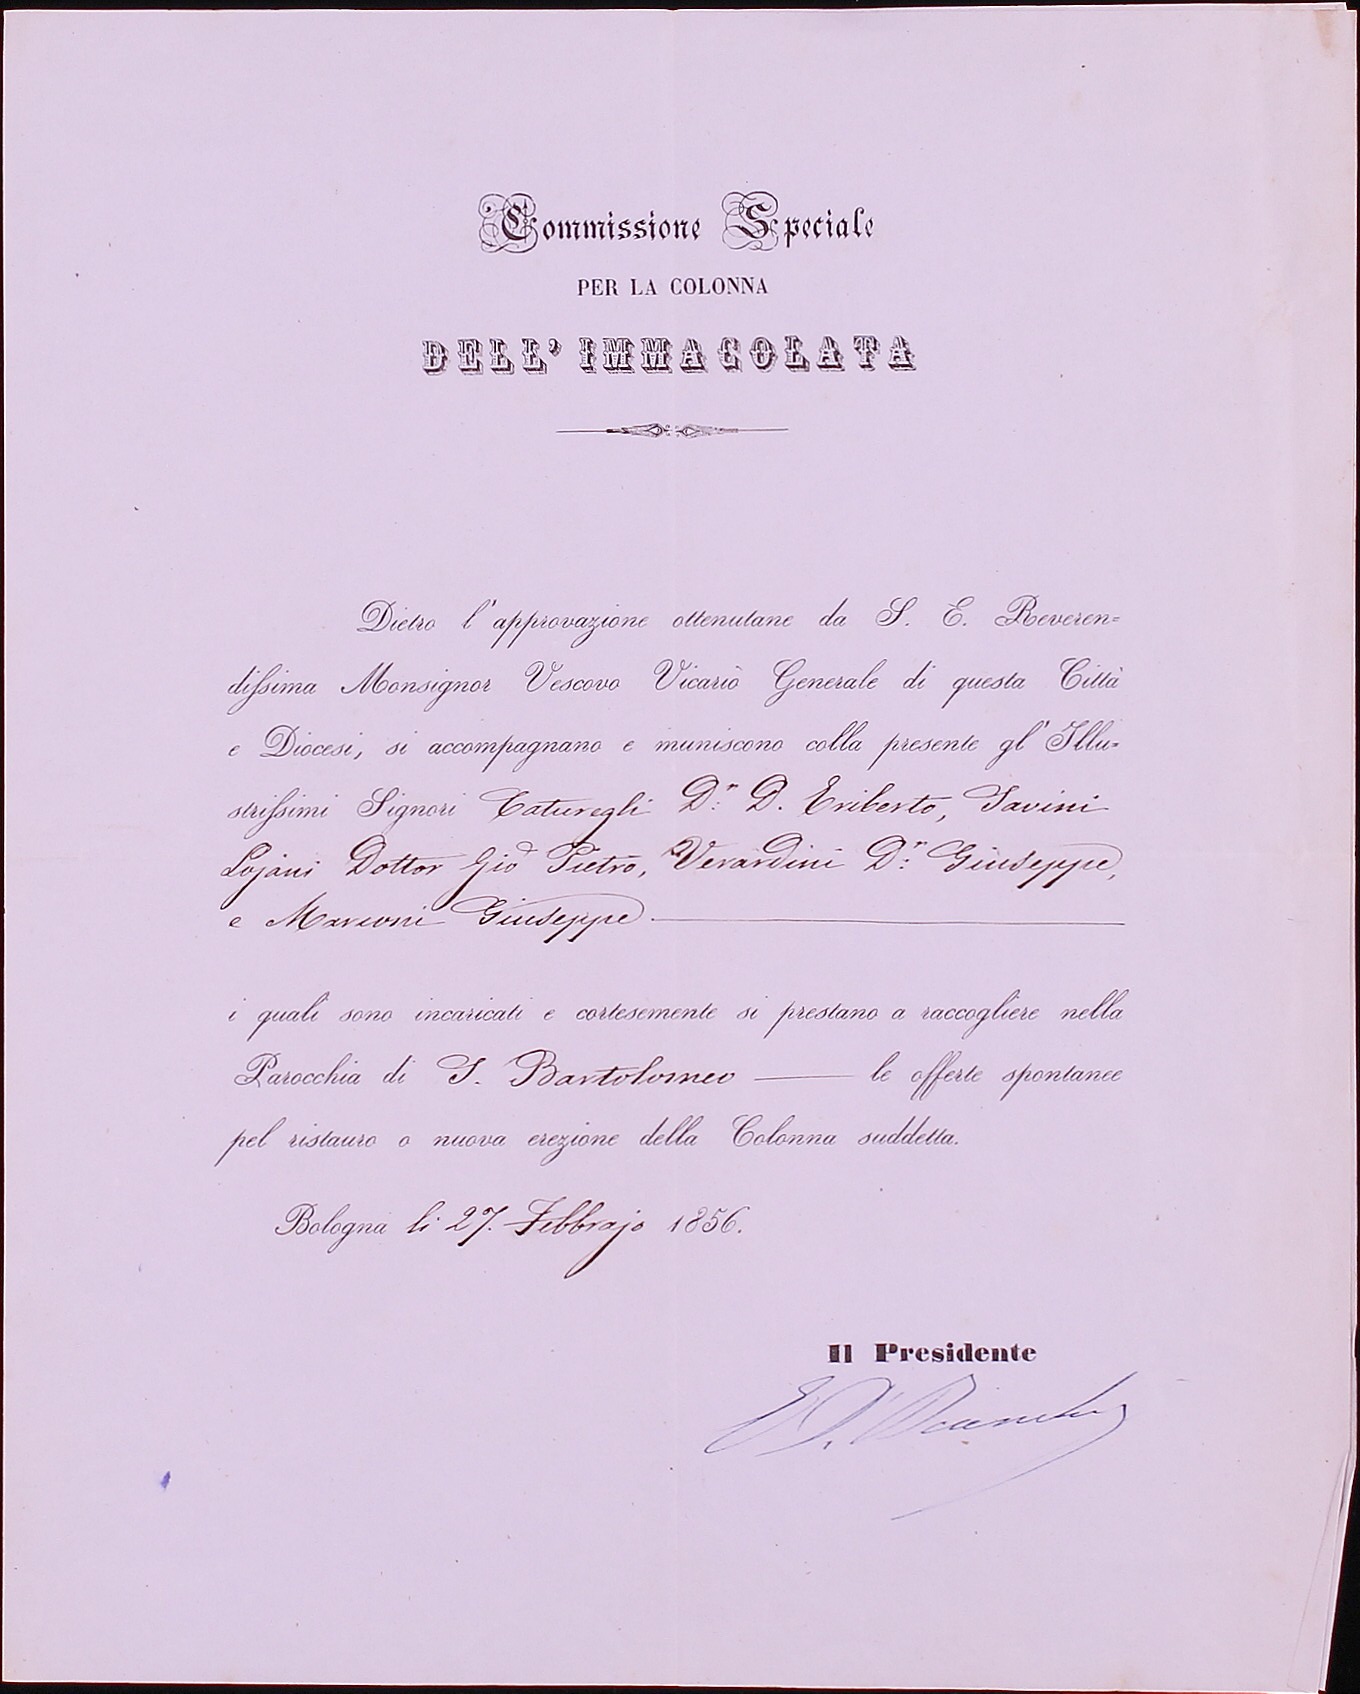 Commissione Speciale
PER LA COLONNA
DELL' IMMACOLATA
Dietro l'approvazione ottenutane da S. E. Reveren=
dissima Monsignor Vescovo Vicario Generale di questa Città
e Diocesi, si accompagnano e muniscono colla presente gl'Illu=
strissimi Signori Caturegli D.r D. Eriberto, Savini
Lojani Dottor Gio Pietro, Verardini D.r Giuseppe,
e Marconi Giuseppe
i quali sono incaricati e cortesemente si prestano a raccogliere nella
Parocchia di S. Bartolomeo le offerte spontanee
pel ristauro o nuova erezione della Colonna suddetta.
Bologna li 27. Febbrajo 1856.
Il Presidente